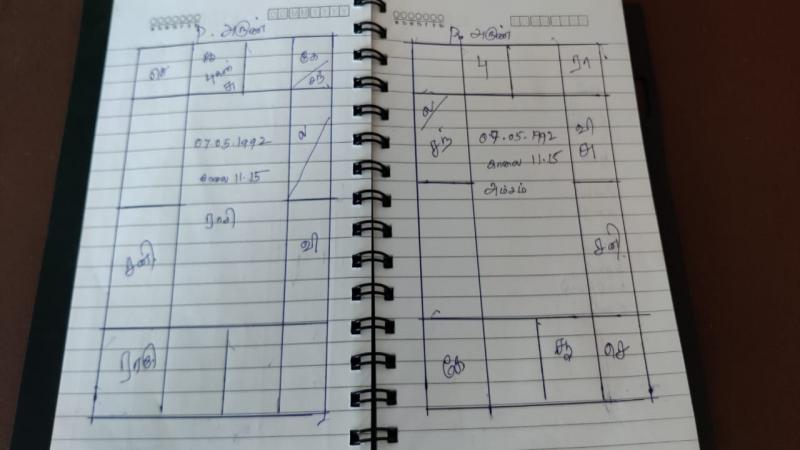 P. அருண்
செ
சூ
புதன்
சு
கே
சந்
ல
07.05.1992
காலை 11.15
ராசி
சனி
வி
ராகு
P. அருண்
பு
ரா
ல
சந்
07.05.1992
காலை 11.15
அம்சம்
வி
சு
சனி
கே
சூ
செ